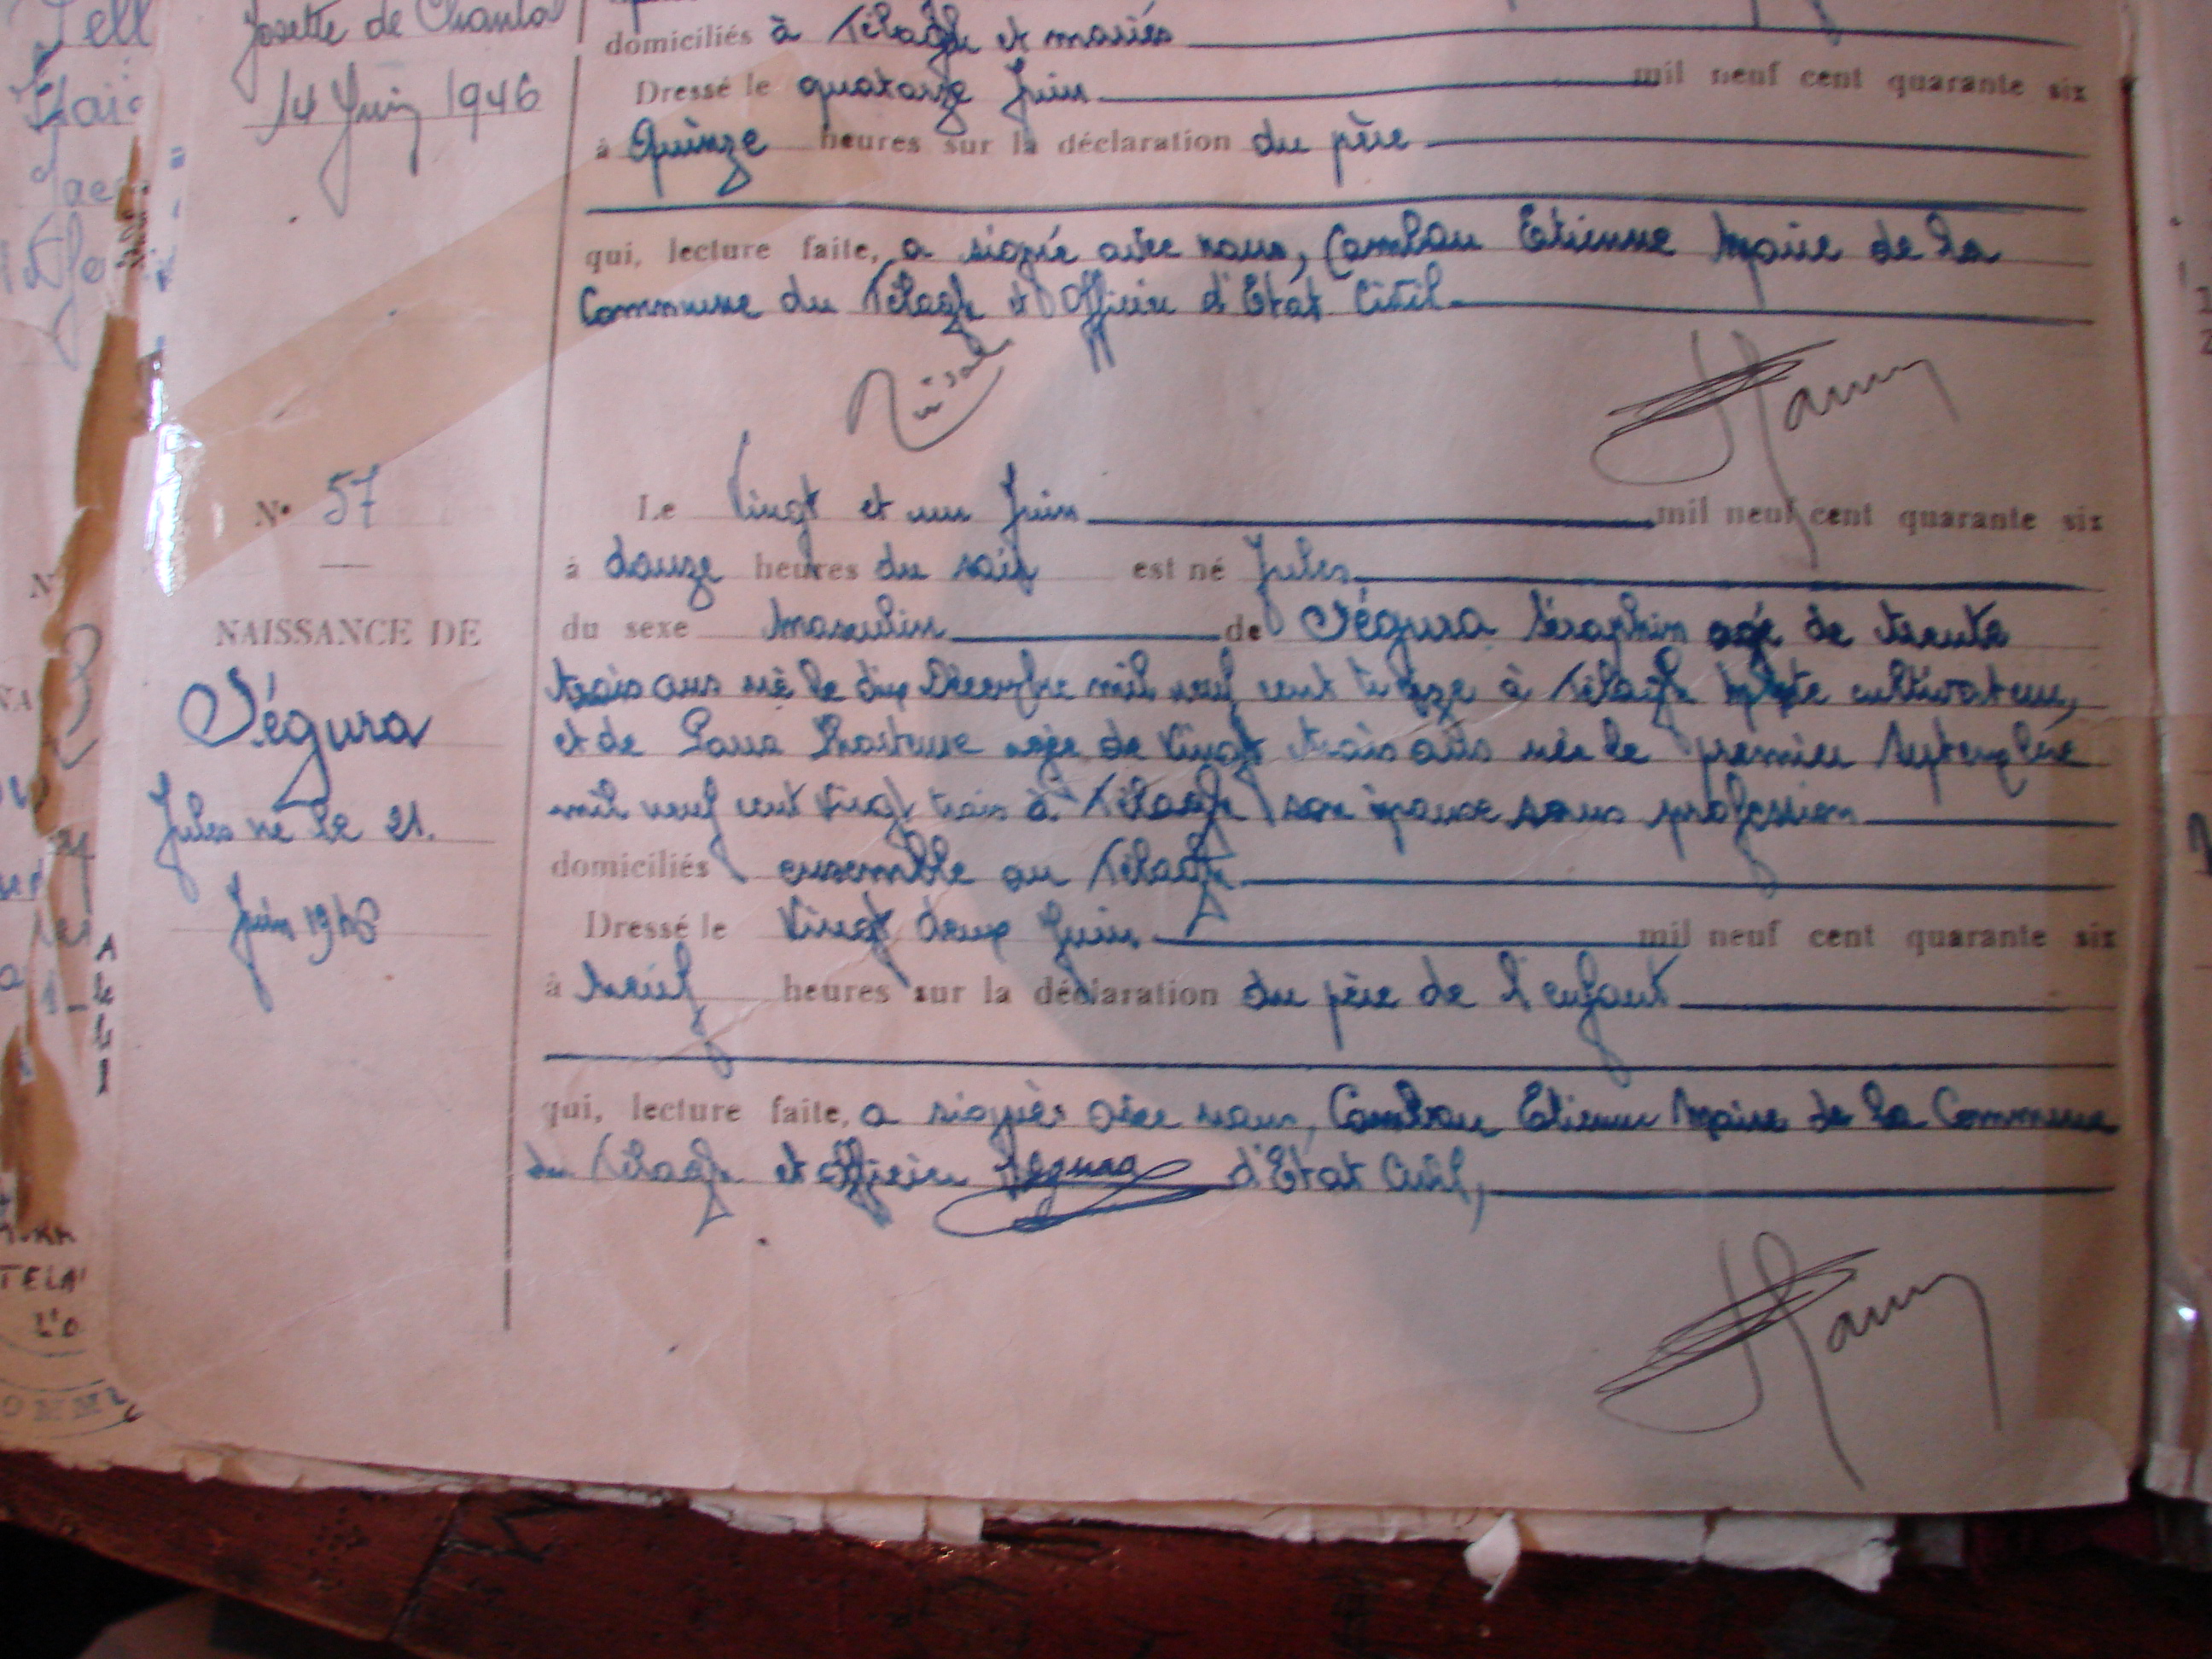 Josette de Chantal
14 Juin 1946
domiciliés à Télagh et mariés
Dressé le quatorze Juin mil neuf cent quarante six
à Quinze heures sur la déclaration du père
qui, lecture faite, a signé avec nous, Etienne Maire de la
Commune du Télagh et Officier d'Etat Civil
N° 57
NAISSANCE DE
Ségura
Jules né le 21.
Juin 1946
Le Vingt et un Juin mil neuf cent quarante six
à douze heures du soir est né Jules
du sexe Masculin de Ségura Séraphin agé de trente
trois ans né le dix Décembre mil neuf cent treize à Télagh cultivateur,
et de agée de Vingt trois ans née le premier Septembre
mil neuf cent Vingt trois à Télagh son épouse sans profession
domiciliés ensemble au Télagh
Dressé le Vingt deux Juin mil neuf cent quarante six
à Neuf heures sur la déclaration du père de l'enfant
qui, lecture faite, a signés avec nous, Etienne Maire de la Commune
du Télagh et officier Segura d'Etat Civil,